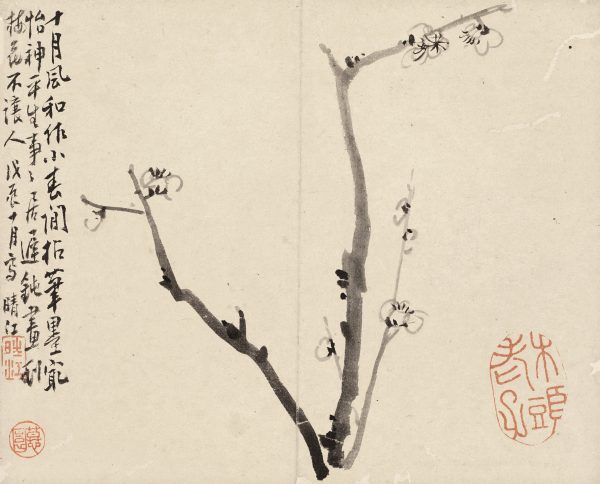 十月風和作小春閒拈筆墨冣
怡神平生事〻居遲鈍畫到
梅花不讓人 戊辰十月寫 晴江
晴江
木頭
老子